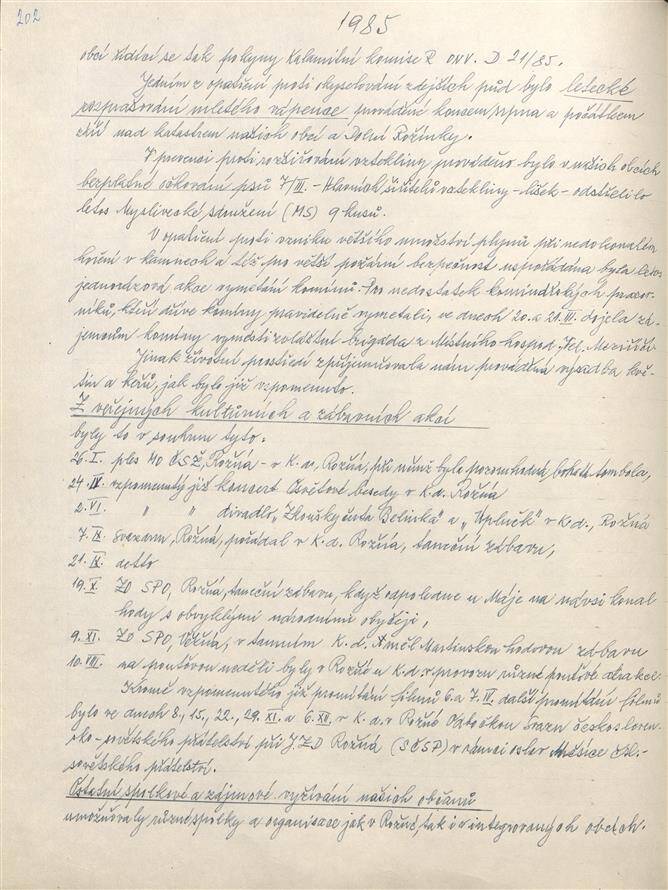 202
1985
obcí řídící se tak pokyny Kalamitní komise R ONV. D 21/85.
Jedním z opatření proti okyselování zdejších půd bylo letecké
rozprašování mletého vápence prováděné koncem srpna a počátkem
září nad katastrem našich obcí a Dolní Rožínky.
V prevenci proti rozšiřování vztekliny provedeno bylo v našich obcích
bezplatné očkování psů 7/III. - Hlavních šiřitelů vztekliny - lišek - odstřelilo
letos Myslivecké sdružení (MS) 9 kusů.
V opatření proti vzniku většího množství plynů při nedokonalém
hoření v kamnech a též pro větší požární bezpečnost uspořádána byla letos
jednorázová akce vymetání komínů. Pro nedostatek kominických pracov-
níků, kteří dříve komíny pravidelně vymetali, ve dnech 20. a 21. III. dojela zá-
jemcům komíny vymésti zvláštní brigáda z Místního hospod. Vel. Meziříčí.
Jinak životní prostředí zpříjemňovala nám prováděná výsadba kvě-
tin a keřů, jak bylo již vzpomenuto.
Z veřejných kulturních a zábavních akcí
byly to v souhrnu tyto:
26. I. ples MO ČSŽ, Rožná - v K. d., Rožná, při němž byla pozoruhodná, bohatá tombola,
24. IV. vzpomenutý již koncert Osvětové besedy v K. d. Rožná
2. VI. " " divadlo „Zkoušky čerta Belínka" a „Úplněk" v K. d., Rožná
7. IX. Svazarm, Rožná, pořádal v K. d. Rožná, taneční zábavu,
21. IX. detto
19. X. ZO SPO, Rožná, taneční zábavu, když odpoledne u Máje na návsi konal
hody s obvyklými národními obyčeji,
9. XI. ZO SPO, Věžná, v tamním K. d. měl Martinskou hodovou zábavu
10. VIII. na pouťovou neděli byly v Rožné u K. d. v provozu různé pouťové atrakce.
Kromě vzpomenutého již promítání filmů 6. a 7. IV. další promítání filmů
bylo ve dnech 8., 15., 22., 29. XI. a 6. XII. v K. d. v Rožné Pobočkou Svazu českosloven-
sko-sovětského přátelství při JZD Rožná (SČSP) v rámci oslav Měsíce čsl.-
sovětského přátelství.
Ostatní spolkové a zájmové vyžívání našich občanů
umožňovaly různé spolky a organisace jak v Rožné, tak i v integrovaných obcích.